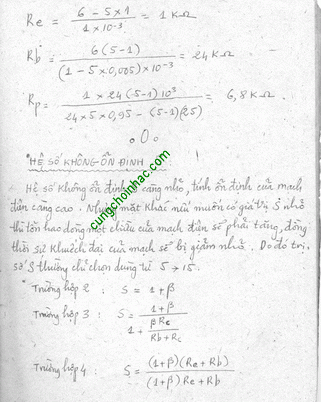 Re = (6 - 5 x 1) / (1 x 10⁻³) = 1 KΩ
Rb = 6(5-1) / ((1 - 5 x 0,005) x 10⁻³) = 24 KΩ
Rp = (1 x 24 (5-1) 10³) / (24 x 5 x 0,95 - (5-1)(25)) = 6,8 KΩ.
oOo
*HỆ SỐ KHÔNG ỔN ĐỊNH :
Hệ số không ổn định S càng nhỏ, tính ổn định của mạch
điện càng cao. Nhưng mặt khác nếu muốn có giá trị S nhỏ
thì tổn hao dòng một chiều của mạch điện sẽ phải tăng, đồng
thời sự khuếch đại của mạch sẽ bị giảm nhỏ. Do đó trị
số S thường chỉ chọn dùng từ 5 → 15.
* Trường hợp 2 : S = 1 + β
Trường hợp 3 : S = (1 + β) / (1 + βRc / (Rb + Rc))
Trường hợp 4 : S = (1+β)(Re + Rb) / ((1+β)Re + Rb)
cungchoinhac.com